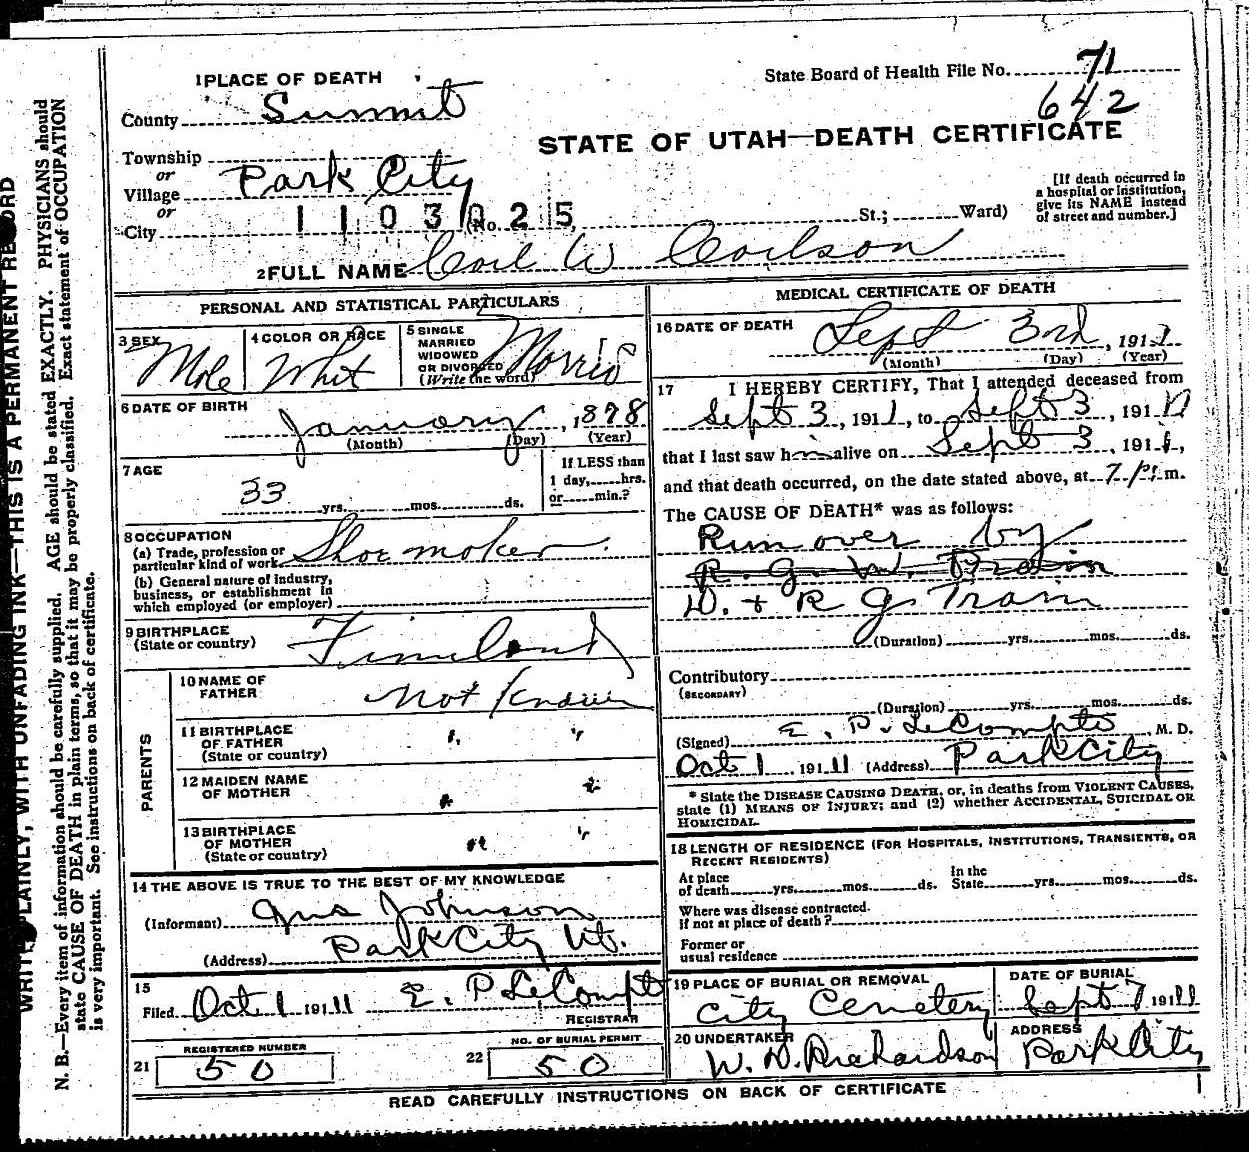 1 PLACE OF DEATH
State Board of Health File No. 71
642
County Summit
STATE OF UTAH—DEATH CERTIFICATE
Township
or
Village Park City
or
City
1103025
No. St.; Ward)
[If death occurred in
a hospital or institution,
give its NAME instead
of street and number.]
2 FULL NAME Carl W Carlson
PERSONAL AND STATISTICAL PARTICULARS
3 SEX Male
4 COLOR OR RACE Whit
5 SINGLE
MARRIED
WIDOWED
OR DIVORCED
(Write the word)
6 DATE OF BIRTH
January, 1878
(Month) (Day) (Year)
7 AGE
33 yrs. mos. ds.
If LESS than
1 day, hrs.
or min.?
8 OCCUPATION
(a) Trade, profession or
particular kind of work Shoe maker
(b) General nature of industry,
business, or establishment in
which employed (or employer)
9 BIRTHPLACE
(State or country) Finland
PARENTS
10 NAME OF
FATHER Not Known
11 BIRTHPLACE
OF FATHER
(State or country) " "
12 MAIDEN NAME
OF MOTHER " "
13 BIRTHPLACE
OF MOTHER
(State or country) " "
14 THE ABOVE IS TRUE TO THE BEST OF MY KNOWLEDGE
(Informant) Gus Johnson
(Address) Park City Ut.
15
Filed Oct 1 1911 E. P. LeCompte
REGISTRAR
21 REGISTERED NUMBER
50
22 NO. OF BURIAL PERMIT
50
MEDICAL CERTIFICATE OF DEATH
16 DATE OF DEATH
Sept 3rd, 1911
(Month) (Day) (Year)
17 I HEREBY CERTIFY, That I attended deceased from
Sept 3, 1911, to Sept 3, 1911
that I last saw him alive on Sept 3, 1911,
and that death occurred, on the date stated above, at 7 p. m.
The CAUSE OF DEATH* was as follows:
Run over by
R. G. W. Train
D. + R G Train
(Duration) yrs. mos. ds.
Contributory
(SECONDARY)
(Duration) yrs. mos. ds.
(Signed) E. P. LeCompte, M. D.
Oct 1 1911 (Address) Park City
* State the DISEASE CAUSING DEATH, or, in deaths from VIOLENT CAUSES,
state (1) MEANS OF INJURY; and (2) whether ACCIDENTAL, SUICIDAL OR
HOMICIDAL.
18 LENGTH OF RESIDENCE (FOR HOSPITALS, INSTITUTIONS, TRANSIENTS, OR
RECENT RESIDENTS)
At place
of death yrs. mos. ds.
In the
State yrs. mos. ds.
Where was disease contracted.
if not at place of death?
Former or
usual residence
19 PLACE OF BURIAL OR REMOVAL
City Cemetery
DATE OF BURIAL
Sept 7 1911
20 UNDERTAKER
W. D. Richardson
ADDRESS
Park City
READ CAREFULLY INSTRUCTIONS ON BACK OF CERTIFICATE
WRITE PLAINLY, WITH UNFADING INK—THIS IS A PERMANENT RECORD
N. B.—Every item of information should be carefully supplied. AGE should be stated EXACTLY. PHYSICIANS should
state CAUSE OF DEATH in plain terms, so that it may be properly classified. Exact statement of OCCUPATION
is very important. See instructions on back of certificate.